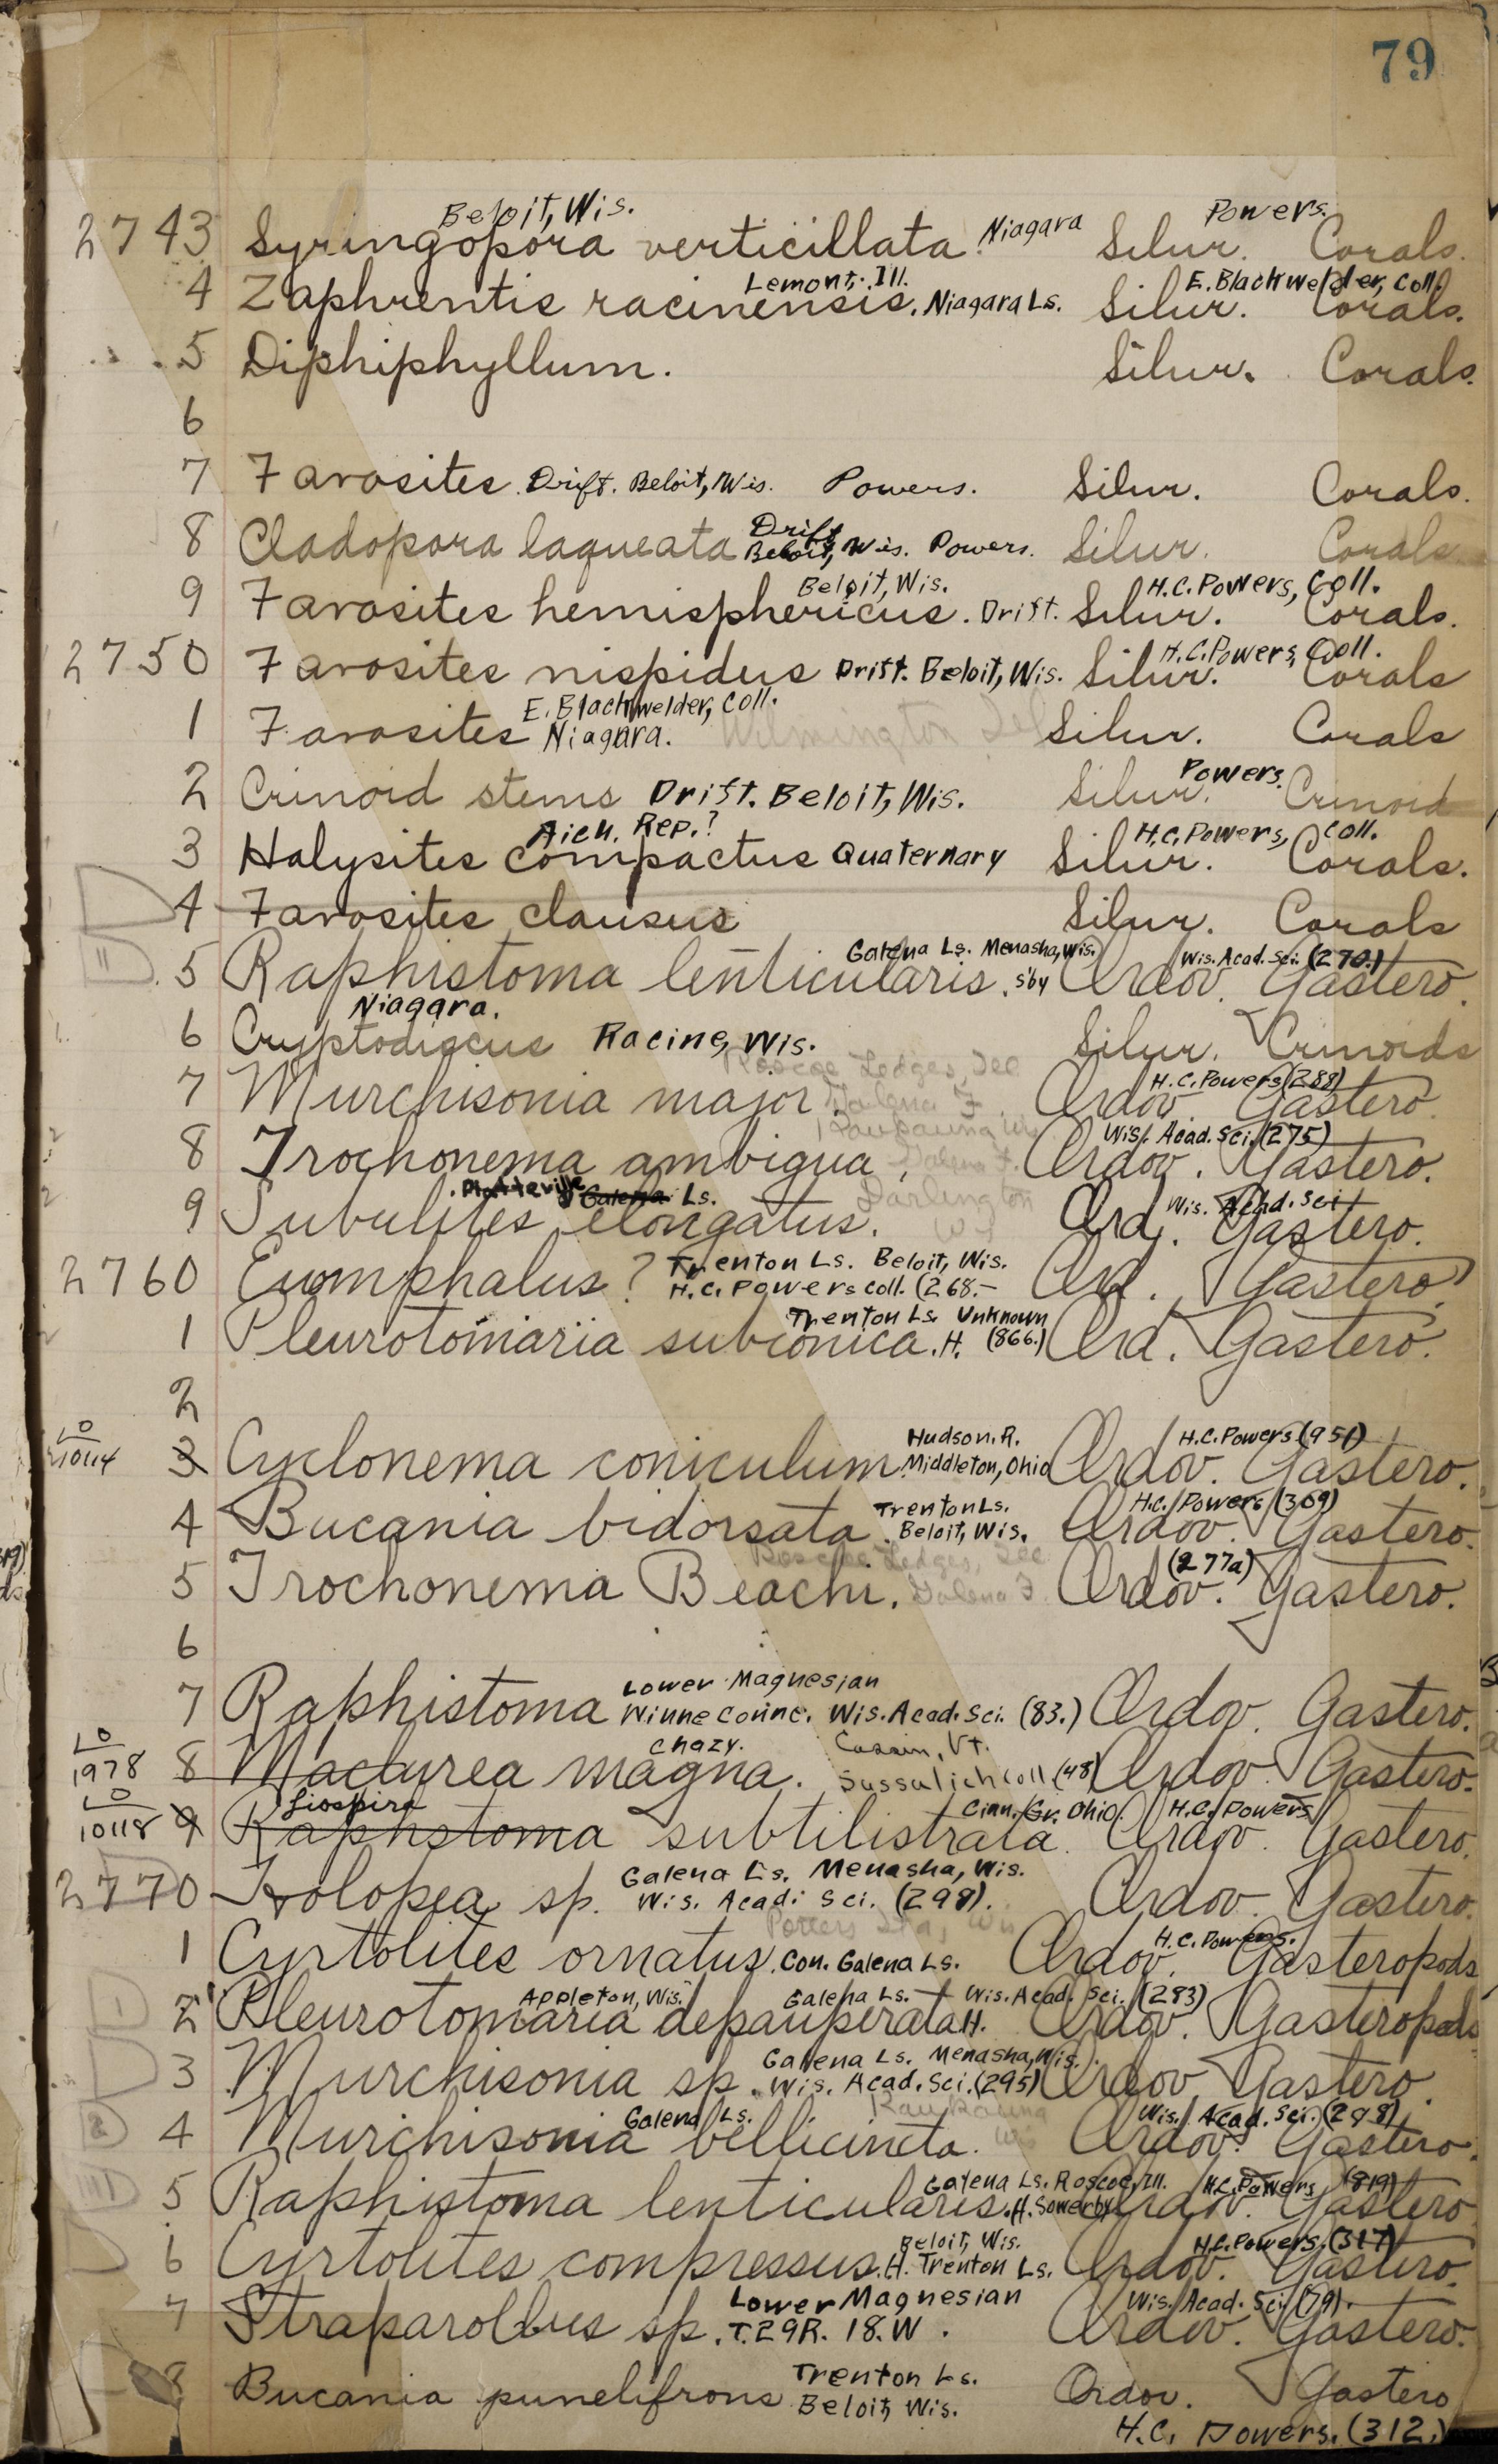 79
Beloit, Wis. Powers.
2743 Syringopora verticillata. Niagara Silur. Corals.
Lemont, Ill. E. Blackwelder, Coll.
4 Zaphrentis racinensis. Niagara Ls. Silur. Corals.
5 Diphiphyllum. Silur. Corals.
6
7 Favosites Drift. Beloit, Wis. Powers. Silur. Corals.
Drift
8 Cladopora laqueata Beloit, Wis. Powers. Silur. Corals
Beloit, Wis. H.C. Powers, Coll.
9 Favosites hemisphericus. Drift. Silur. Corals.
H.C. Powers, Coll.
2750 Favosites nispidus Drift. Beloit, Wis. Silur. Corals
E. Blackwelder, Coll.
1 Favosites Niagara. Wilmington Ill Silur. Corals
Powers.
2 Crinoid stems Drift. Beloit, Wis. Silur. Crinoid
Rep.? H.C. Powers, Coll.
3 Halysites compactus Quaternary Silur. Corals.
4 Favosites clausus Silur. Corals
Galena Ls. Menasha, Wis. Wis. Acad. Sci. (270.)
5 Raphistoma lenticularis. s'by Ordov. Gastero.
Niagara.
6 Cryptodiscus Racine, Wis. Silur. Crinoids
Roscoe Ledges, Ill H.C. Powers (288)
7 Murchisonia major. Galena F. Ordov. Gastero.
Kaukauna Wis Wis. Acad. Sci. (275)
8 Trochonema ambigua. Galena F. Ordov. Gastero.
Platteville Galena Ls. Darlington Wis. Acad. Sci
9 Subulites elongatus. Wis Ord. Gastero.
Trenton Ls. Beloit, Wis.
2760 Euomphalus? H.C. Powers Coll. (268.- Ord. Gastero.
Trenton Ls. Unknown
1 Pleurotomaria subconica. H. (866.) Ord. Gastero.
2
Hudson. R. H.C. Powers (951)
10114 3 Cyclonema coniculum. Middleton, Ohio Ordov. Gastero.
Trenton Ls. H.C. Powers (309)
4 Bucania bidorsata. Beloit, Wis. Ordov. Gastero.
Roscoe Ledges, Ill (277a)
5 Trochonema Beachi. Galena F. Ordov. Gastero.
6
Lower Magnesian
7 Raphistoma Winneconne. Wis. Acad. Sci. (83.) Ordov. Gastero.
Chazy. Vt.
1978 8 Maclurea magna. Coll. (48) Ordov. Gastero.
Liospira Cinn. Gr. Ohio. H.C. Powers
10118 9 Raphstoma subtilistrata. Ordov. Gastero.
Galena Ls. Menasha, Wis.
2770 Holopea sp. Wis. Acad. Sci. (298). Ordov. Gastero.
H.C. Powers.
1 Cyrtolites ornatus. Con. Galena Ls. Ordov. Gasteropods
Appleton, Wis. Galena Ls. Wis. Acad. Sci. (283)
2 Pleurotomaria depauperata H. Ordov. Gasteropods
Galena Ls. Menasha, Wis.
3 Murchisonia sp. Wis. Acad. Sci. (295) Ordov. Gastero.
Galena Ls. Kaukauna Wis. Acad. Sci. (298)
4 Murchisonia bellicincta. Wis Ordov. Gastero.
Galena Ls. Roscoe, Ill. H.C. Powers (819)
5 Raphistoma lenticularis. H. Sowerby Ordov. Gastero
Beloit, Wis. H.C. Powers. (317)
6 Cyrtolites compressus. H. Trenton Ls. Ordov. Gastero.
Lower Magnesian Wis. Acad. Sci. (79).
7 Straparollus sp. T.29 R. 18. W. Ordov. Gastero.
Trenton Ls.
8 Bucania punelifrons Beloit, Wis. Ordov. Gastero
H.C. Powers. (312.)